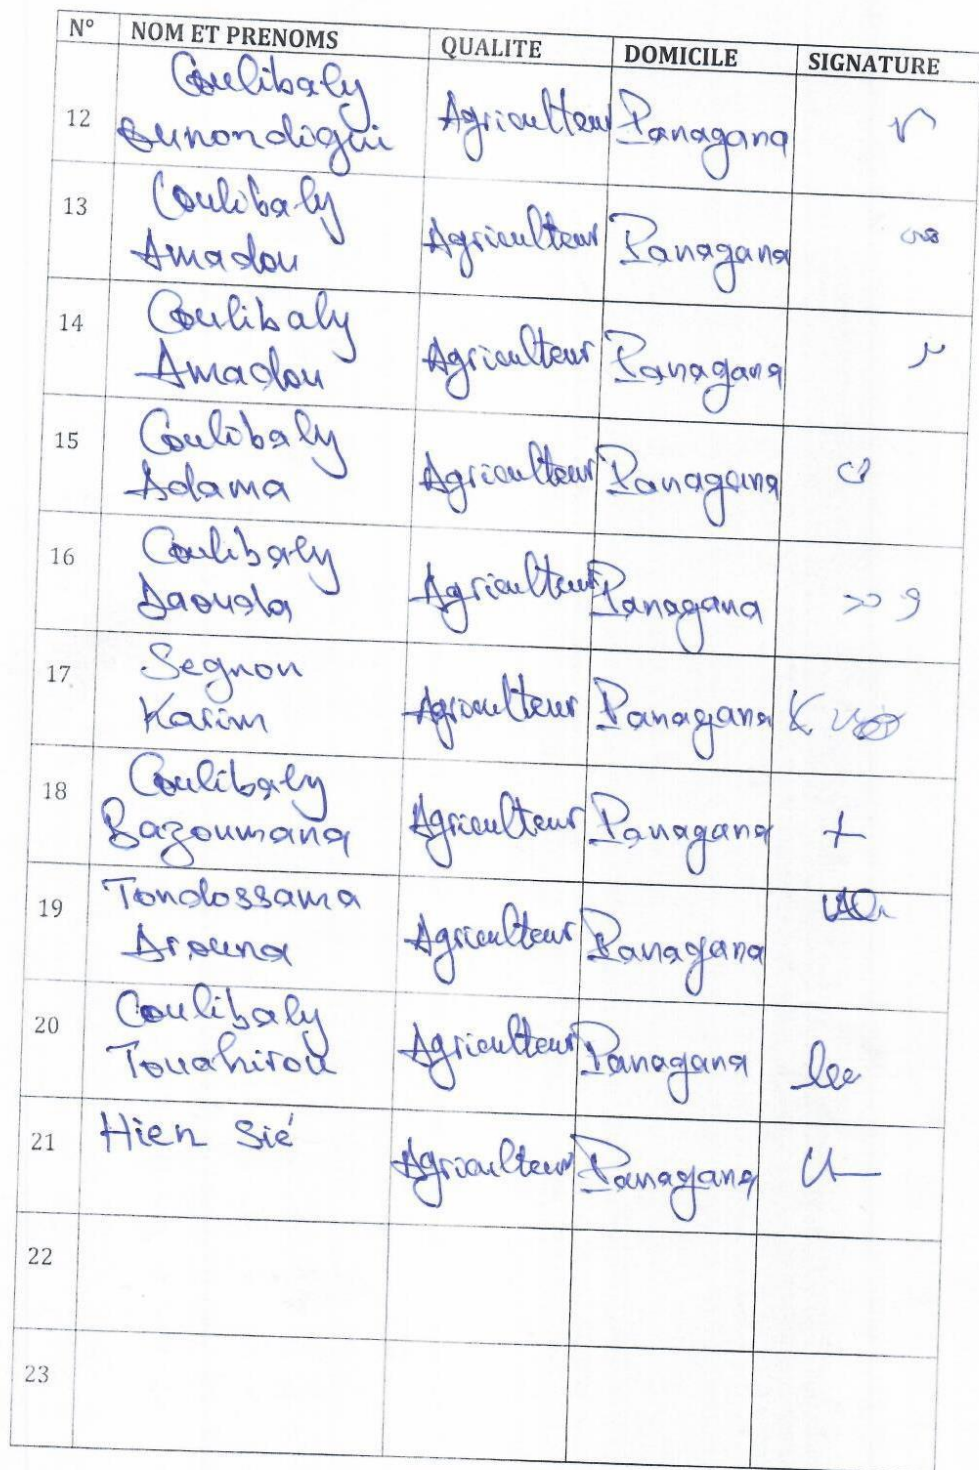 N° NOM ET PRENOMS QUALITE DOMICILE SIGNATURE
Coulibaly
12 Agriculteur Panagana
13 Coulibaly
Amadou Agriculteur Panagana
14 Coulibaly
Amadou Agriculteur Panagana
15 Coulibaly
Adama Agriculteur Panagana
16 Coulibaly
Daouda Agriculteur Panagana
17 Segnon
Karim Agriculteur Panagana
18 Coulibaly
Bazoumana Agriculteur Panagana
19 Tondossama
Drouna Agriculteur Panagana
20 Coulibaly
Touahirou Agriculteur Panagana
21 Hien Sié
Agriculteur Panagana
22
23